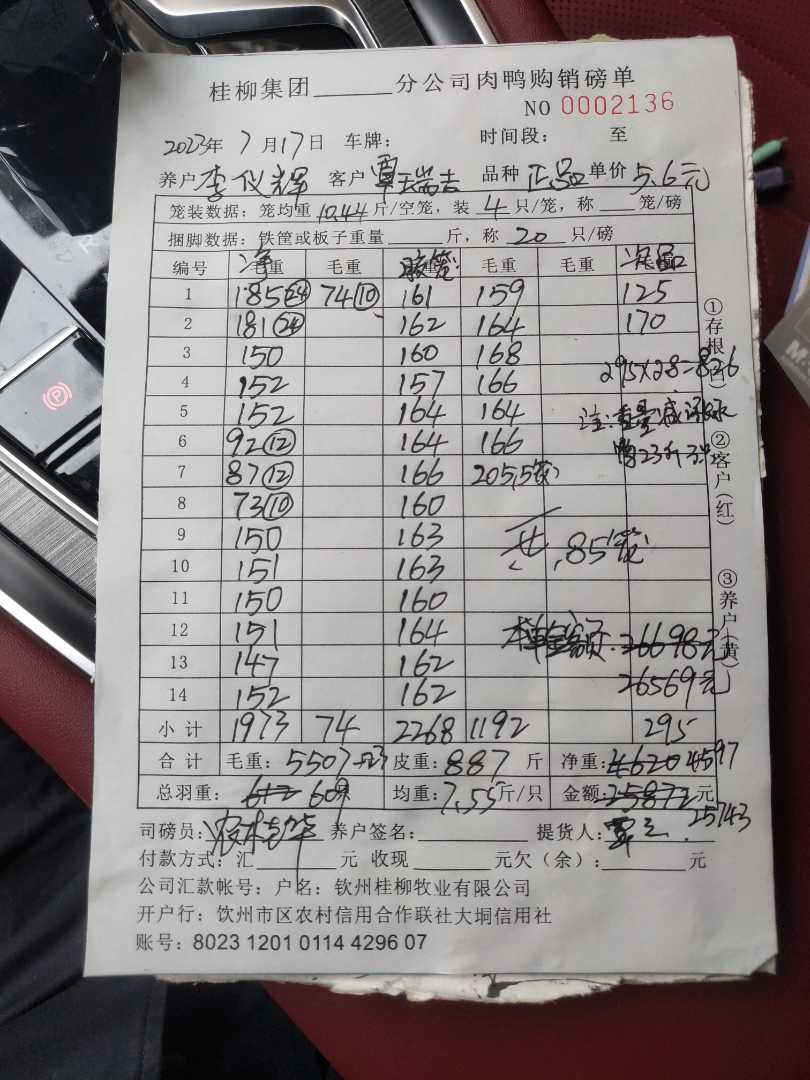 桂柳集团______分公司肉鸭购销磅单
NO 0002136
2023年 7月17日 车牌: 时间段: 至
养户 李仪辉 客户 覃天当吉 品种 正品 单价 5.6元
笼装数据: 笼均重 10.44 斤/空笼, 装 4 只/笼, 称 ___ 笼/磅
捆脚数据: 铁筐或板子重量______斤, 称 20 只/磅
编号 净重 毛重 胶笼 毛重 毛重 次品
1 185(24) 74(10) 161 159 125
2 181(24) 162 164 170
3 150 160 168
4 152 157 166 295×2.8=826
5 152 164 164
6 92(12) 164 166
7 87(12) 166 205,5笼
8 73(10) 160
9 150 163
共,85笼
10 151 163
11 150 160
12 151 164
26698元
13 147 162
26569元
14 152 162
小计 1973 74 2268 1192 295
合计 毛重: 5507-23 皮重: 887 斤 净重: 4620 4597
总羽重: 612 609 均重: 7.55斤/只 金额: 25872元
25743
司磅员: 养户签名: 提货人:
付款方式: 汇______元 收现______元欠(余): ______元
公司汇款帐号: 户名: 钦州桂柳牧业有限公司
开户行: 饮州市区农村信用合作联社大垌信用社
账号: 8023 1201 0114 4296 07
①存根(白) ②客户(红) ③养户(黄)